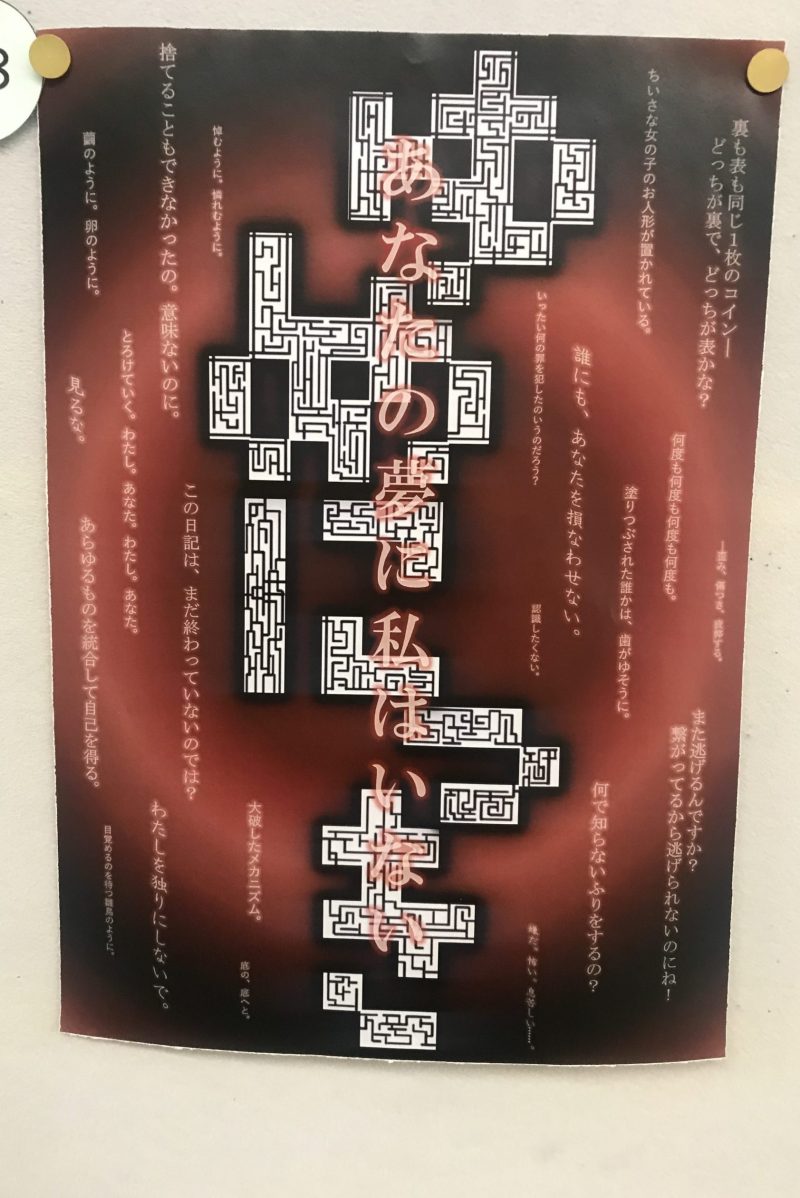 裏も表も同じ1枚のコイン―
どっちが裏で、どっちが表かな？
ちいさな女の子のお人形が置かれている。
ゆめにっき
あなたの夢に私はいない
いったい何の罪を犯したのいうのだろう？
誰にも、あなたを損なわせない。
何度も何度も何度も何度も。
塗りつぶされた誰かは、歯がゆそうに。
傷つき、疲弊する。
認識したくない。
また逃げるんですか？
繋がってるから逃げられないのにね！
何で知らないふりをするの？
嫌だ。怖い。息苦しい……。
捨てることもできなかったの。意味ないのに。
悼むように。憐れむように。
繭のように。卵のように。
とろけていく。わたし。あなた。わたし。あなた。
見るな。
この日記は、まだ終わっていないのでは？
あらゆるものを統合して自己を得る。
大破したメカニズム。
わたしを独りにしないで。
目覚めるのを待つ雛鳥のように。
底の、底へと。